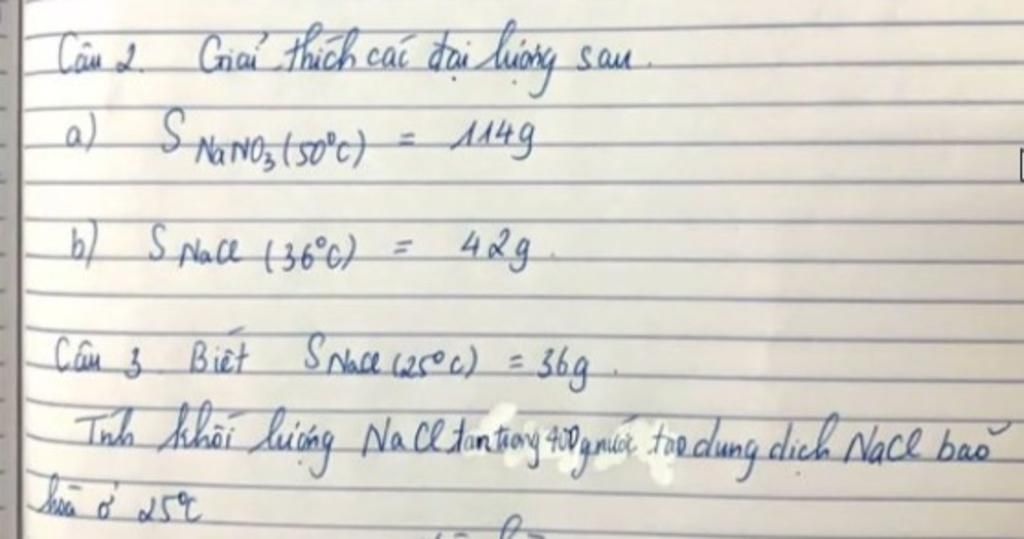 Câu 2. Giải thích các đại lượng sau.
a) S NaNO₃ (50°C) = 114g
b) S NaCl (36°C) = 42g.
Câu 3 Biết S NaCl (25°C) = 36g.
Tính khối lượng NaCl tan trong 400g nước tạo dung dịch NaCl bão
hoà ở 25°C